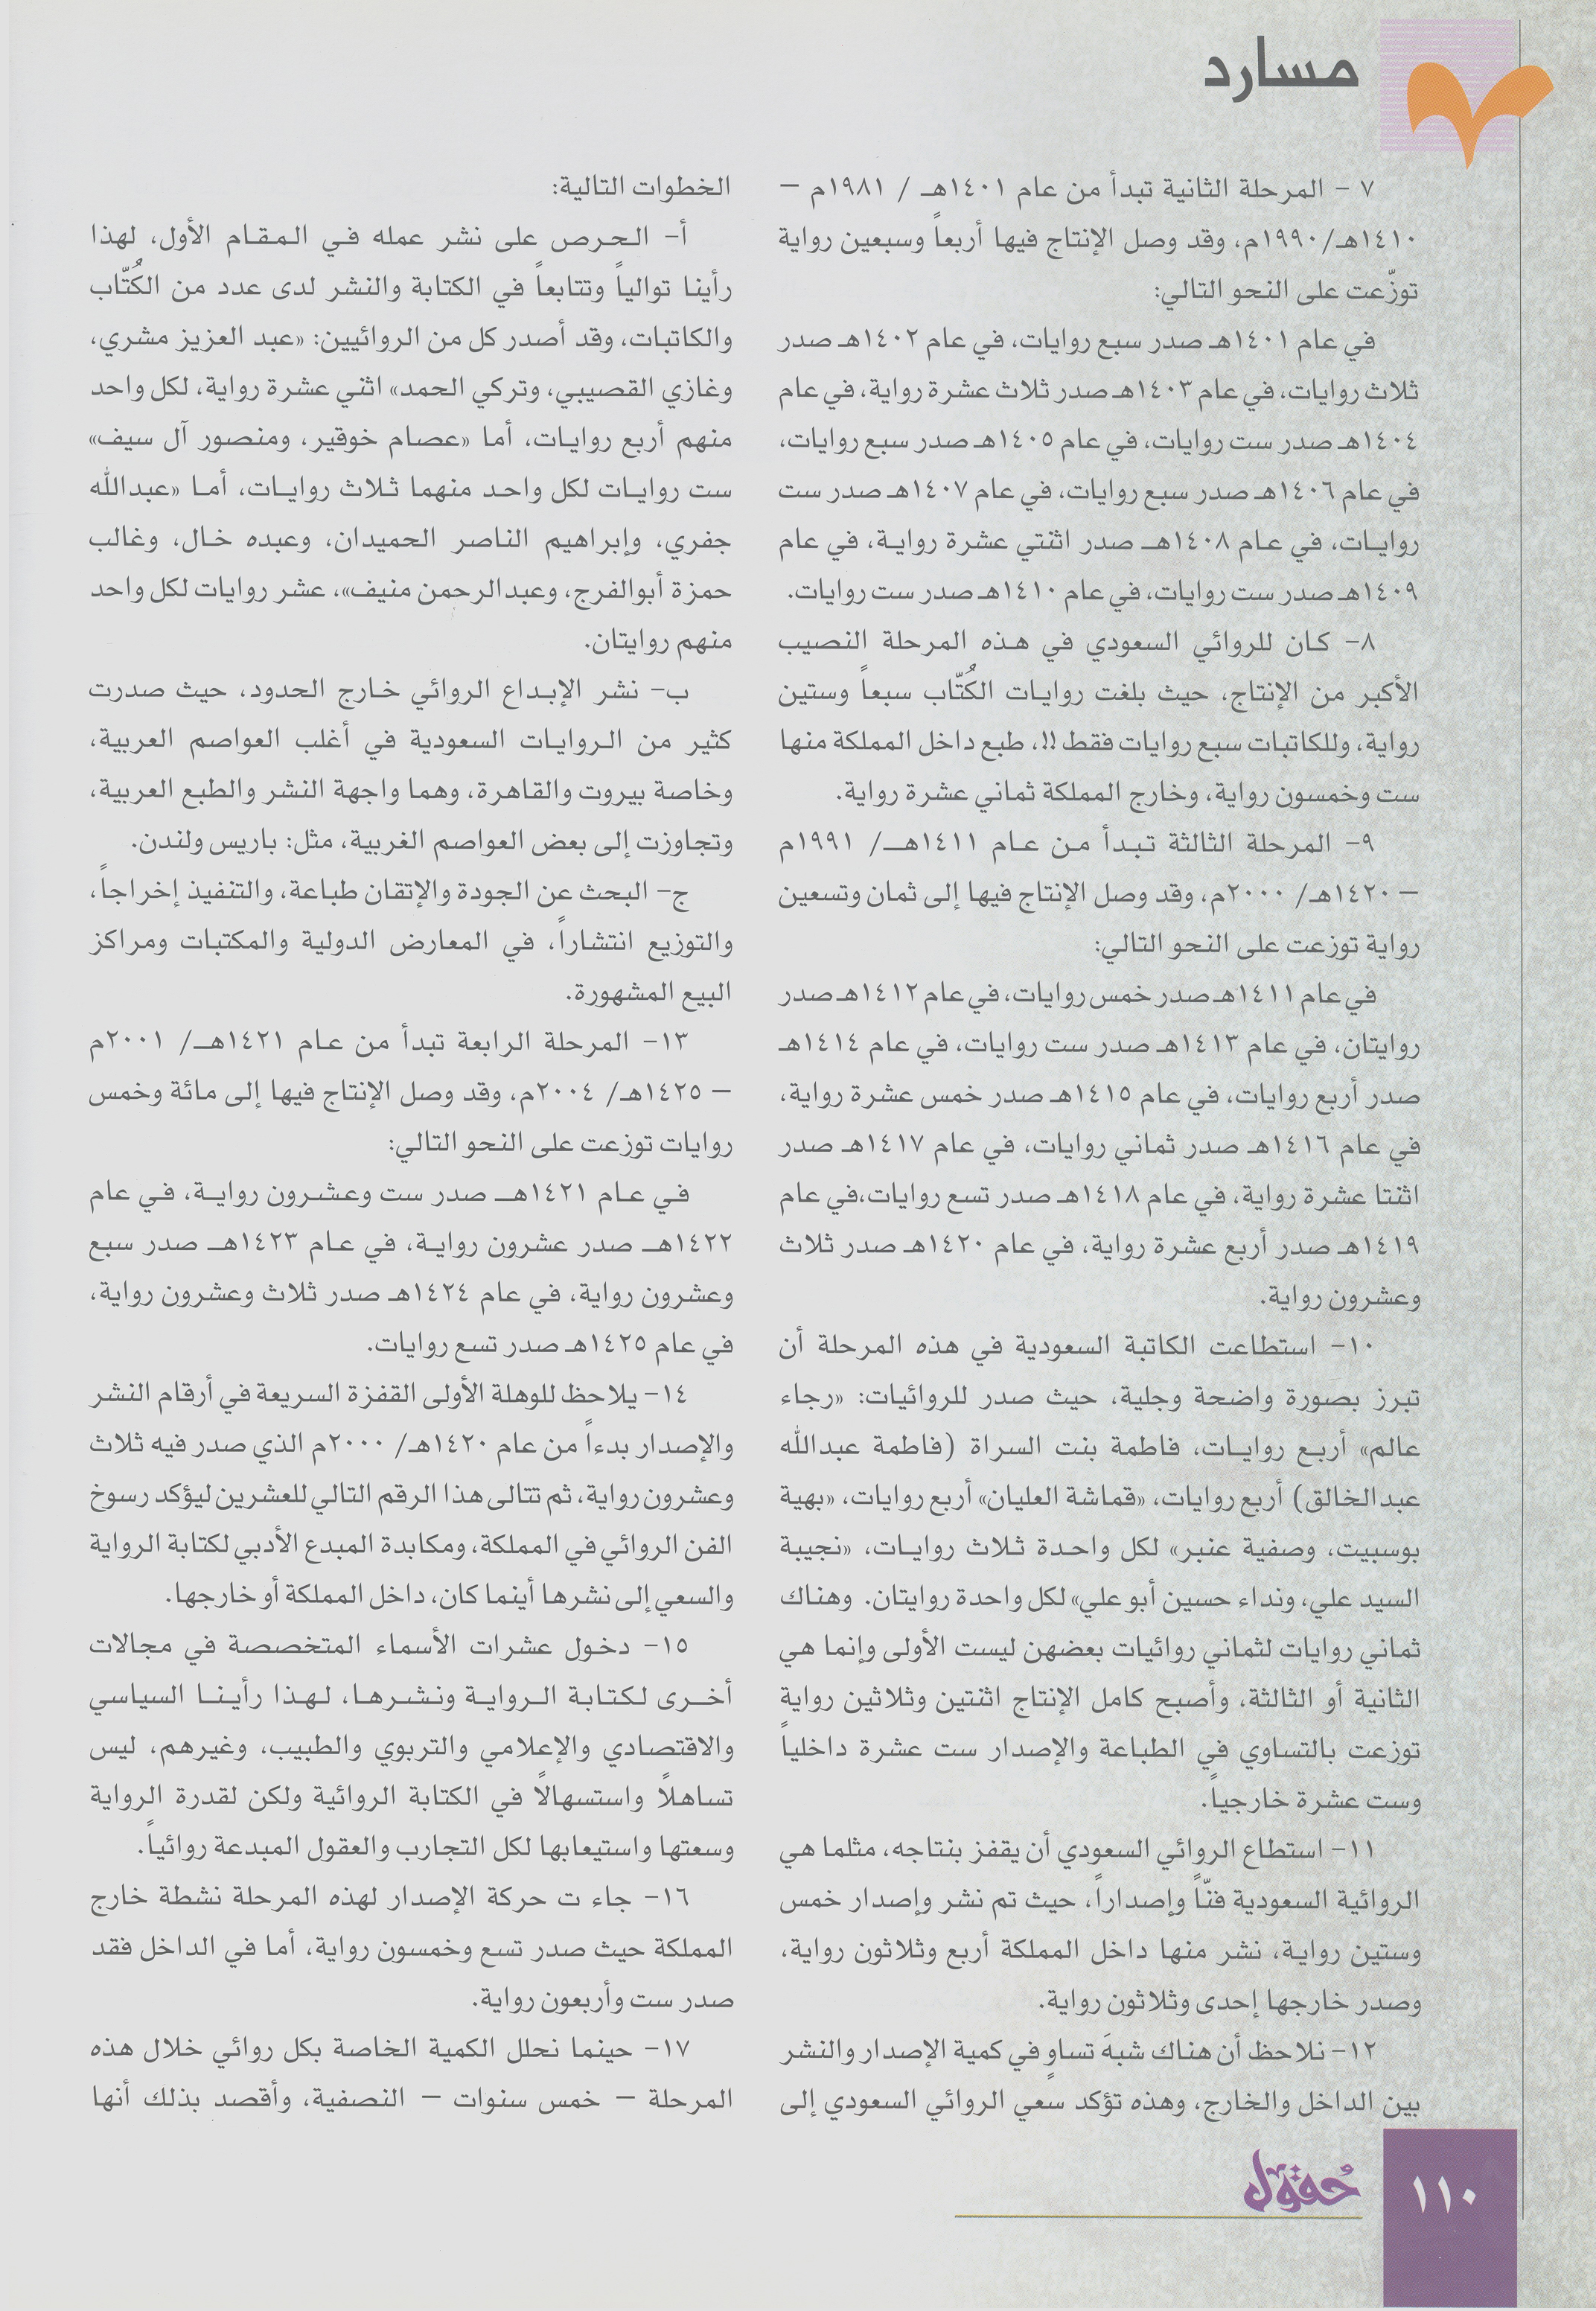 مسارد
٧ - المرحلة الثانية تبدأ من عام ١٤٠١هـ / ١٩٨١م –
١٤١٠هـ/١٩٩٠م، وقد وصل الإنتاج فيها أربعاً وسبعين رواية
توزّعت على النحو التالي:
في عام ١٤٠١هـ صدر سبع روايات، في عام ١٤٠٢هـ صدر
ثلاث روايات، في عام ١٤٠٣هـ صدر ثلاث عشرة رواية، في عام
١٤٠٤هـ صدر ست روايات، في عام ١٤٠٥هـ صدر سبع روايات،
في عام ١٤٠٦هـ صدر سبع روايات، في عام ١٤٠٧هـ صدر ست
روايات، في عام ١٤٠٨هـ صدر اثنتي عشرة رواية، في عام
١٤٠٩هـ صدر ست روايات، في عام ١٤١٠هـ صدر ست روايات.
٨- كان للروائي السعودي في هذه المرحلة النصيب
الأكبر من الإنتاج، حيث بلغت روايات الكُتّاب سبعاً وستين
رواية، وللكاتبات سبع روايات فقط !!، طبع داخل المملكة منها
ست وخمسون رواية، وخارج المملكة ثماني عشرة رواية.
٩- المرحلة الثالثة تبدأ من عام ١٤١١هـ/ ١٩٩١م
– ١٤٢٠هـ/ ٢٠٠٠م، وقد وصل الإنتاج فيها إلى ثمان وتسعين
رواية توزعت على النحو التالي:
في عام ١٤١١هـ صدر خمس روايات، في عام ١٤١٢هـ صدر
روايتان، في عام ١٤١٣هـ صدر ست روايات، في عام ١٤١٤هـ
صدر أربع روايات، في عام ١٤١٥هـ صدر خمس عشرة رواية،
في عام ١٤١٦هـ صدر ثماني روايات، في عام ١٤١٧هـ صدر
اثنتا عشرة رواية، في عام ١٤١٨هـ صدر تسع روايات،في عام
١٤١٩هـ صدر أربع عشرة رواية، في عام ١٤٢٠هـ صدر ثلاث
وعشرون رواية.
١٠- استطاعت الكاتبة السعودية في هذه المرحلة أن
تبرز بصورة واضحة وجلية، حيث صدر للروائيات: «رجاء
عالم» أربع روايات، فاطمة بنت السراة (فاطمة عبدالله
عبدالخالق) أربع روايات، «قماشة العليان» أربع روايات، «بهية
بوسبيت، وصفية عنبر» لكل واحدة ثلاث روايات، «نجيبة
السيد علي، ونداء حسين أبو علي» لكل واحدة روايتان. وهناك
ثماني روايات لثماني روائيات بعضهن ليست الأولى وإنما هي
الثانية أو الثالثة، وأصبح كامل الإنتاج اثنتين وثلاثين رواية
توزعت بالتساوي في الطباعة والإصدار ست عشرة داخلياً
وست عشرة خارجياً.
١١- استطاع الروائي السعودي أن يقفز بنتاجه، مثلما هي
الروائية السعودية فنّاً وإصداراً، حيث تم نشر وإصدار خمس
وستين رواية، نشر منها داخل المملكة أربع وثلاثون رواية،
وصدر خارجها إحدى وثلاثون رواية.
١٢- نلاحظ أن هناك شبهَ تساوٍ في كمية الإصدار والنشر
بين الداخل والخارج، وهذه تؤكد سعي الروائي السعودي إلى
الخطوات التالية:
أ- الحرص على نشر عمله في المقام الأول، لهذا
رأينا توالياً وتتابعاً في الكتابة والنشر لدى عدد من الكُتّاب
والكاتبات، وقد أصدر كل من الروائيين: «عبد العزيز مشري،
وغازي القصيبي، وتركي الحمد» اثني عشرة رواية، لكل واحد
منهم أربع روايات، أما «عصام خوقير، ومنصور آل سيف»
ست روايات لكل واحد منهما ثلاث روايات، أما «عبدالله
جفري، وإبراهيم الناصر الحميدان، وعبده خال، وغالب
حمزة أبوالفرج، وعبدالرحمن منيف»، عشر روايات لكل واحد
منهم روايتان.
ب- نشر الإبداع الروائي خارج الحدود، حيث صدرت
كثير من الروايات السعودية في أغلب العواصم العربية،
وخاصة بيروت والقاهرة، وهما واجهة النشر والطبع العربية،
وتجاوزت إلى بعض العواصم الغربية، مثل: باريس ولندن.
ج- البحث عن الجودة والإتقان طباعة، والتنفيذ إخراجاً،
والتوزيع انتشاراً، في المعارض الدولية والمكتبات ومراكز
البيع المشهورة.
١٣- المرحلة الرابعة تبدأ من عام ١٤٢١هـ/ ٢٠٠١م
– ١٤٢٥هـ/ ٢٠٠٤م، وقد وصل الإنتاج فيها إلى مائة وخمس
روايات توزعت على النحو التالي:
في عام ١٤٢١هـ صدر ست وعشرون رواية، في عام
١٤٢٢هـ صدر عشرون رواية، في عام ١٤٢٣هـ صدر سبع
وعشرون رواية، في عام ١٤٢٤هـ صدر ثلاث وعشرون رواية،
في عام ١٤٢٥هـ صدر تسع روايات.
١٤- يلاحظ للوهلة الأولى القفزة السريعة في أرقام النشر
والإصدار بدءاً من عام ١٤٢٠هـ/ ٢٠٠٠م الذي صدر فيه ثلاث
وعشرون رواية، ثم تتالى هذا الرقم التالي للعشرين ليؤكد رسوخ
الفن الروائي في المملكة، ومكابدة المبدع الأدبي لكتابة الرواية
والسعي إلى نشرها أينما كان، داخل المملكة أو خارجها.
١٥- دخول عشرات الأسماء المتخصصة في مجالات
أخرى لكتابة الرواية ونشرها، لهذا رأينا السياسي
والاقتصادي والإعلامي والتربوي والطبيب، وغيرهم، ليس
تساهلاً واستسهالاً في الكتابة الروائية ولكن لقدرة الرواية
وسعتها واستيعابها لكل التجارب والعقول المبدعة روائياً.
١٦- جاء ت حركة الإصدار لهذه المرحلة نشطة خارج
المملكة حيث صدر تسع وخمسون رواية، أما في الداخل فقد
صدر ست وأربعون رواية.
١٧- حينما نحلل الكمية الخاصة بكل روائي خلال هذه
المرحلة – خمس سنوات – النصفية، وأقصد بذلك أنها
حُقول
١١٠